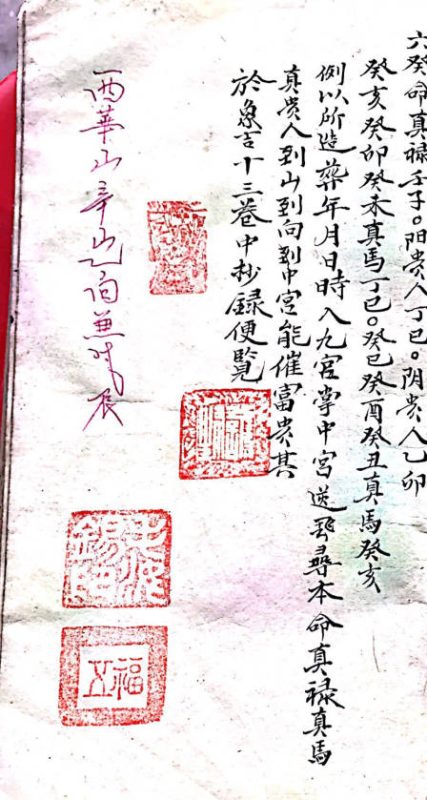 六癸命真禄壬子。阳贵人丁巳。阴贵人乙卯
癸亥癸卯癸未真馬丁巳。癸巳癸酉癸丑真馬癸亥
例以所造葬年月日時入九宮掌中宮遁飛尋本命真禄真馬
真贵人到山到向到中宮能催富贵其
於象吉十三卷中抄録便覧
西華山辛山乙向兼戌辰
五福